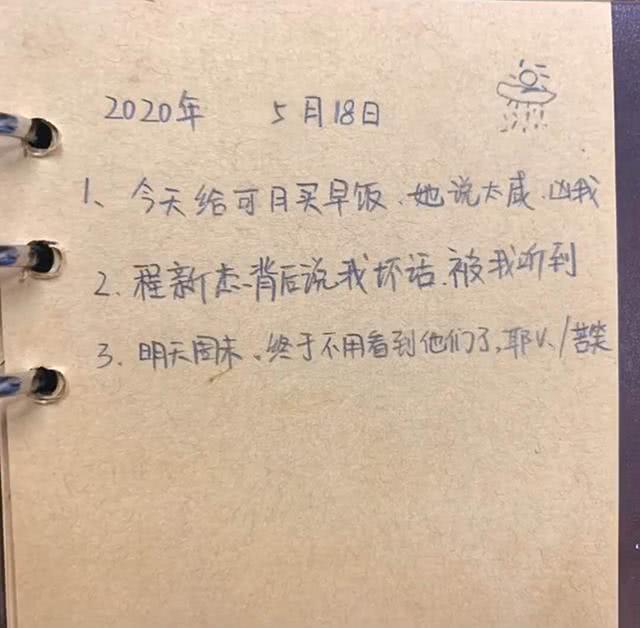 2020年 5月18日
1、今天给可月买早饭、她说太咸、凶我
2. 程新杰背后说我坏话、被我听到
3. 明天周末、终于不用看到他们了,耶V、/苦笑